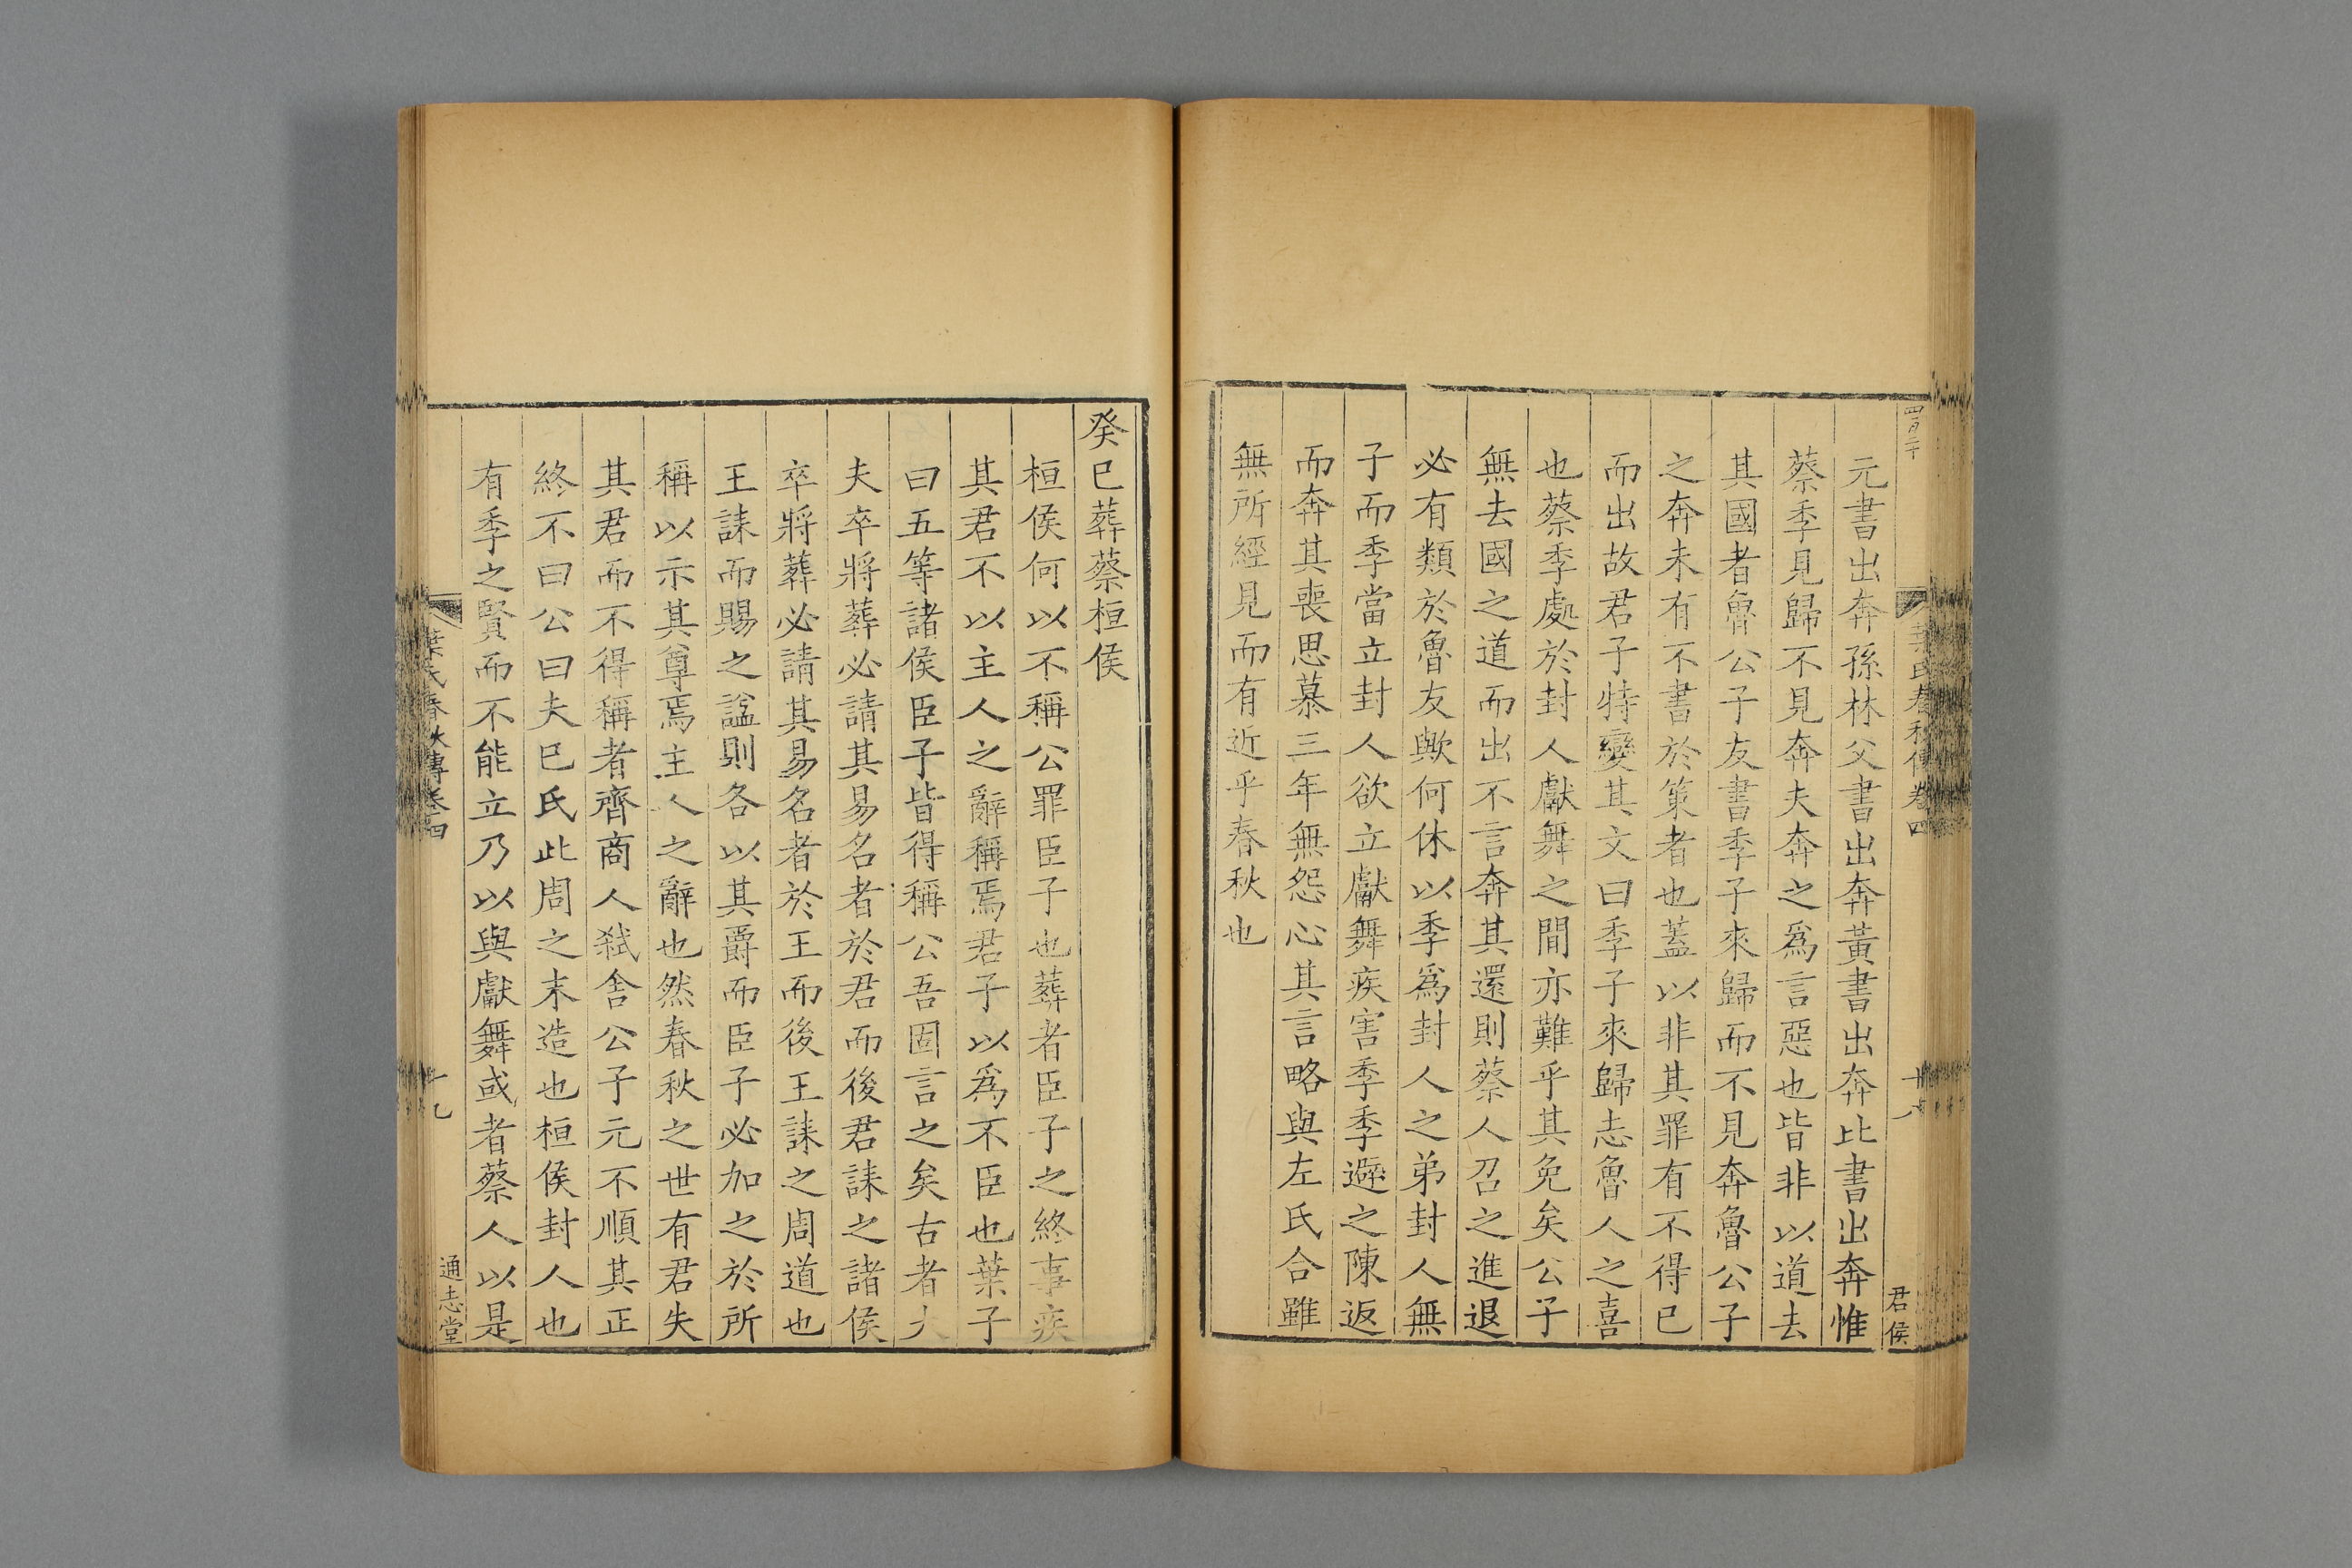 四百二十
葉氏春秋傳卷四
十八
君侯
元書出奔孫林父書出奔黃書出奔比書出奔惟
蔡季見歸不見奔夫奔之爲言惡也皆非以道去
其國者魯公子友書季子來歸而不見奔魯公子
之奔未有不書於策者也蓋以非其罪有不得已
而出故君子特變其文曰季子來歸志魯人之喜
也蔡季處於封人獻舞之間亦難乎其免矣公子
無去國之道而出不言奔其還則蔡人召之進退
必有類於魯友歟何休以季爲封人之弟封人無
子而季當立封人欲立獻舞疾害季季避之陳返
而奔其喪思慕三年無怨心其言略與左氏合雖
無所經見而有近乎春秋也
癸巳葬蔡桓侯
桓侯何以不稱公罪臣子也葬者臣子之終事疾
其君不以主人之辭稱焉君子以爲不臣也葉子
曰五等諸侯臣子皆得稱公吾固言之矣古者大
夫卒將葬必請其易名者於君而後君誄之諸侯
卒將葬必請其易名者於王而後王誄之周道也
王誄而賜之諡則各以其爵而臣子必加之於所
稱以示其尊焉主人之辭也然春秋之世有君失
其君而不得稱者齊商人弒舍公子元不順其正
終不曰公曰夫巳氏此周之末造也桓侯封人也
有季之賢而不能立乃以與獻舞或者蔡人以是
葉氏春秋傳卷四
十九
通志堂